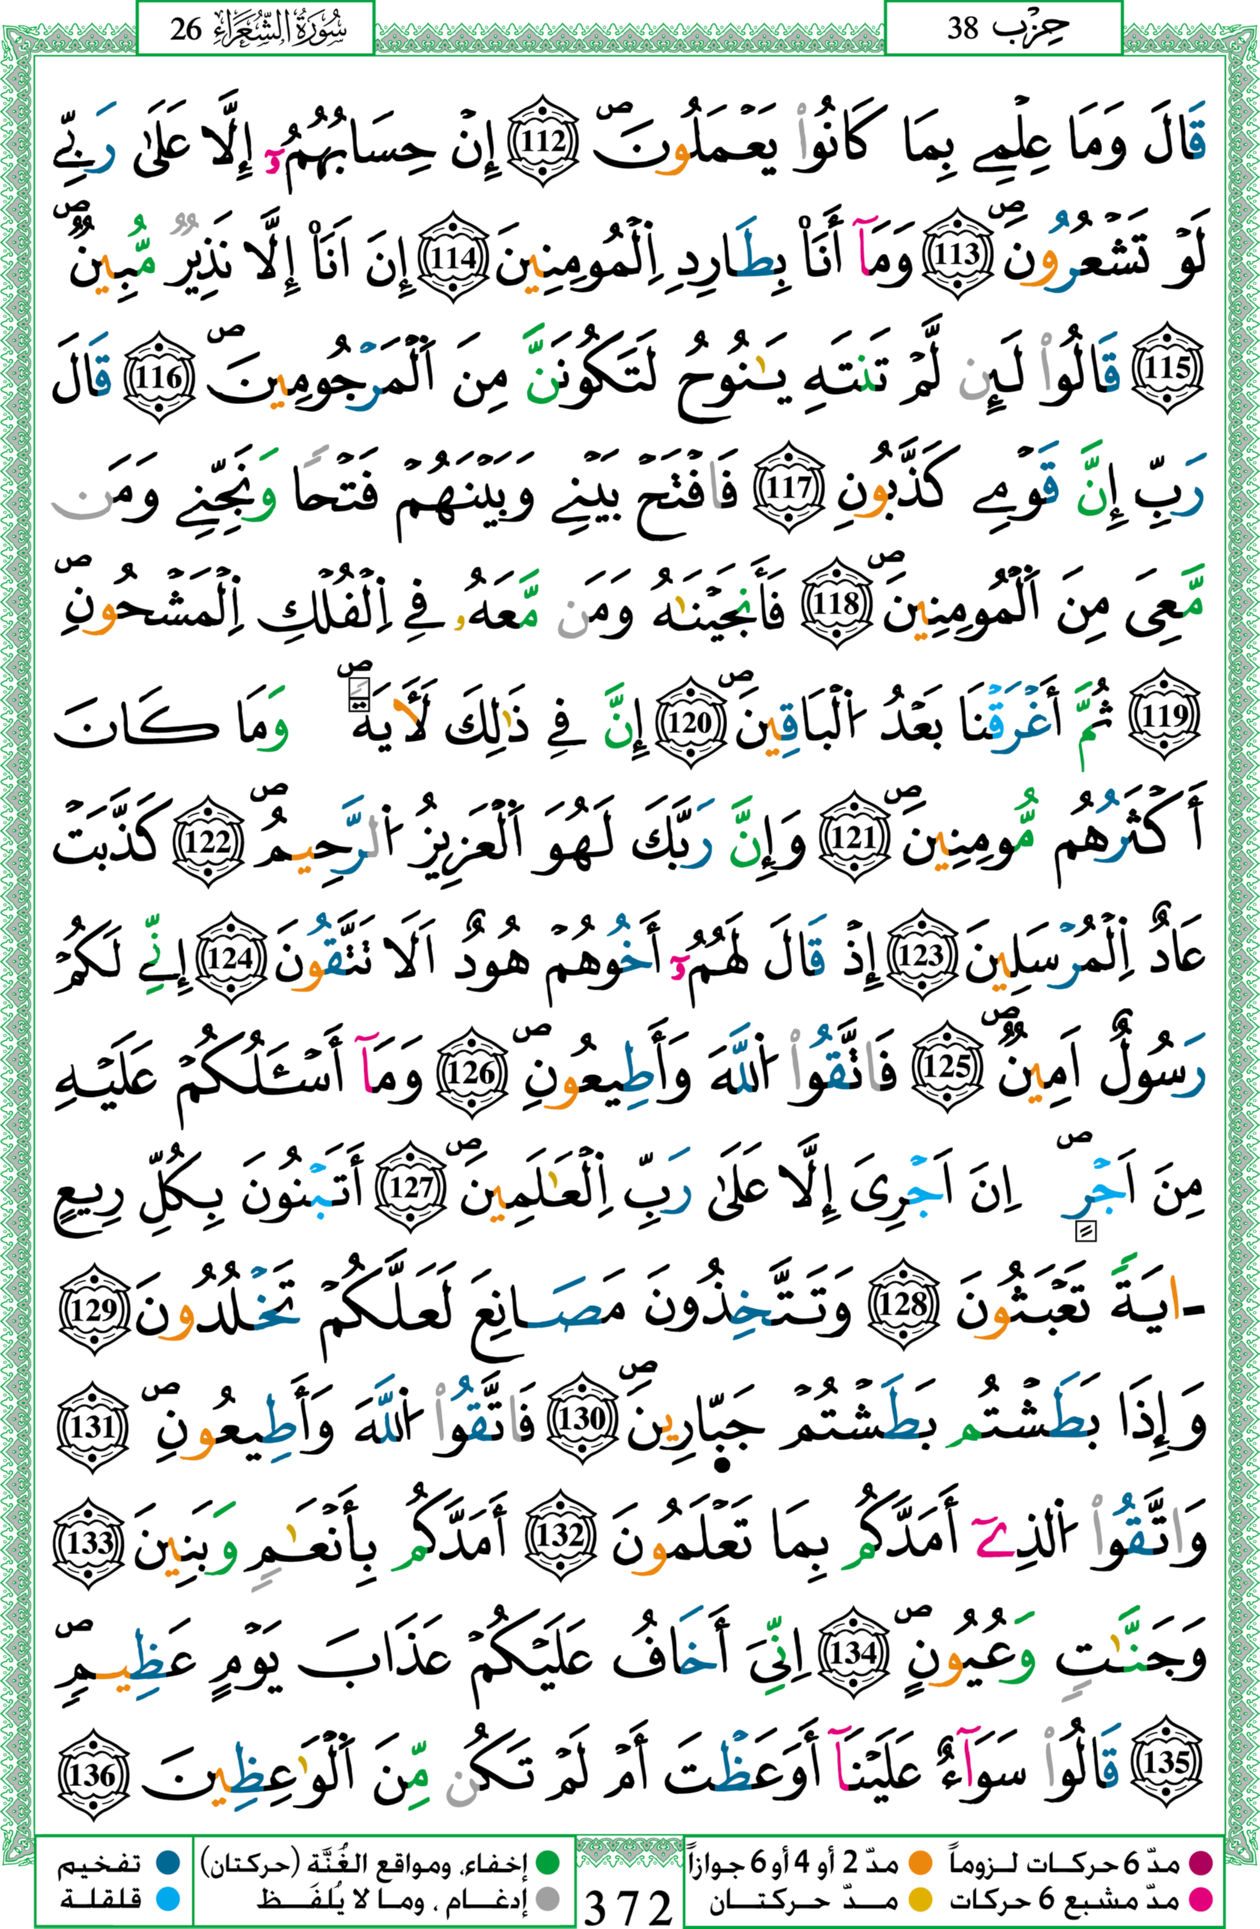 حِزْب 38
سُورَةُ الشُّعَرَاءِ 26
قَالَ وَمَا عِلْمِے بِمَا كَانُواْ يَعْمَلُونَۖ 112 إِنْ حِسَابُهُمُۥٓ إِلَّا عَلَىٰ رَبِّے
لَوْ تَشْعُرُونَۖ 113 وَمَآ أَنَا۠ بِطَارِدِ اِ۬لْمُومِنِينَ 114 إِنَ اَنَا۠ إِلَّا نَذِيرٞ مُّبِينٞۖ
115 قَالُواْ لَئِن لَّمْ تَنتَهِ يَٰنُوحُ لَتَكُونَنَّ مِنَ اَ۬لْمَرْجُومِينَۖ 116 قَالَ
رَبِّ إِنَّ قَوْمِے كَذَّبُونِ 117 فَافْتَحْ بَيْنِے وَبَيْنَهُمْ فَتْحاٗ وَنَجِّنِے وَمَن
مَّعِىَ مِنَ اَ۬لْمُومِنِينَۖ 118 فَأَنجَيْنَٰهُ وَمَن مَّعَهُۥ فِے اِ۬لْفُلْكِ اِ۬لْمَشْحُونِۖ
119 ثُمَّ أَغْرَقْنَا بَعْدُ اُ۬لْبَاقِينَۖ 120 إِنَّ فِے ذَٰلِكَ لَأٓيَةٗۖ وَمَا كَانَ
أَكْثَرُهُم مُّومِنِينَۖ 121 وَإِنَّ رَبَّكَ لَهُوَ اَ۬لْعَزِيزُ اُ۬لرَّحِيمُۖ 122 كَذَّبَتْ
عَادٌ اِ۬لْمُرْسَلِينَ 123 إِذْ قَالَ لَهُمُۥٓ أَخُوهُمْ هُودٌ اَلَا تَتَّقُونَ 124 إِنِّے لَكُمْ
رَسُولٌ اَمِينٞۖ 125 فَاتَّقُواْ اُ۬للَّهَ وَأَطِيعُونِۖ 126 وَمَآ أَسْـَٔلُكُمْ عَلَيْهِ
مِنَ اَجْرٍۖ اِنَ اَجْرِىَ إِلَّا عَلَىٰ رَبِّ اِ۬لْعَٰلَمِينَۖ 127 أَتَبْنُونَ بِكُلِّ رِيعٍ
ـ۬ايَةٗ تَعْبَثُونَ 128 وَتَتَّخِذُونَ مَصَانِعَ لَعَلَّكُمْ تَخْلُدُونَ 129
وَإِذَا بَطَشْتُم بَطَشْتُمْ جَبّ۪ارِينَۖ 130 فَاتَّقُواْ اُ۬للَّهَ وَأَطِيعُونِۖ 131
وَاتَّقُواْ اُ۬لذِےٓ أَمَدَّكُم بِمَا تَعْلَمُونَ 132 أَمَدَّكُم بِأَنْعَٰمٖ وَبَنِينَ 133
وَجَنَّٰتٖ وَعُيُونٍۖ 134 اِنِّىَ أَخَافُ عَلَيْكُمْ عَذَابَ يَوْمٍ عَظِيمٖۖ
135 قَالُواْ سَوَآءٌ عَلَيْنَآ أَوَعَظْتَ أَمْ لَمْ تَكُن مِّنَ اَ۬لْوَٰعِظِينَ 136
مدّ 6 حركـات لـزوماً مدّ 2 أو 4 أو 6 جوازاً إخفاء، ومواقع الغُنَّة (حركتان) تفخيم
مدّ مشبع 6 حركات مـدّ حركتـان إدغـام ، ومـا لا يُلفَـظ قلقلة
372